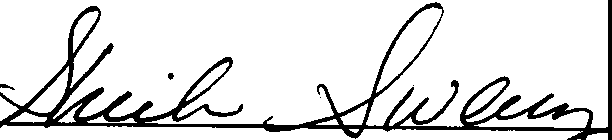 Sheila Sweeney